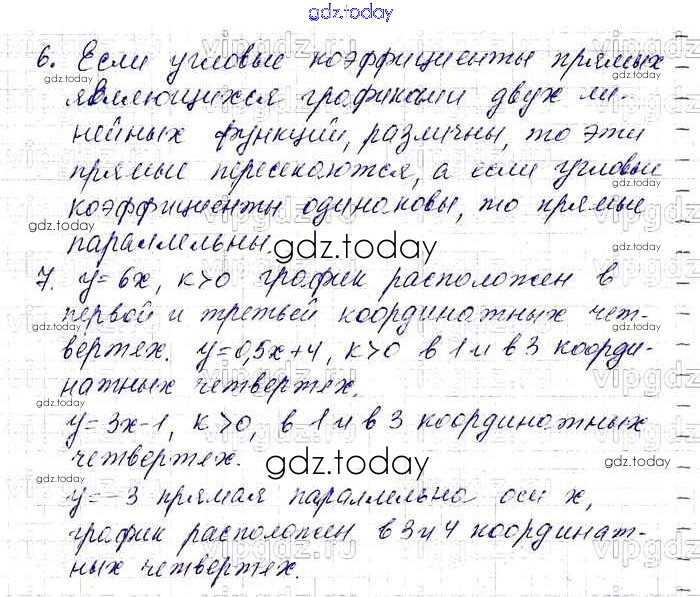 gdz.today
6. Если угловые коэффициенты прямых
являющихся графиками двух ли-
нейных функций, различны, то эти
прямые пересекаются, а если угловые
коэффициенты одинаковы, то прямые
параллельны
gdz.today
7. y=6x, к>0 график расположен в
первой и третьей координатных чет-
вертях. y=0,5x+4, к>0 в 1 и в 3 коорди-
натных четвертях.
y=3x-1, к>0, в 1 и в 3 координатных
четвертях.
gdz.today
y=-3 прямая параллельна оси x,
график расположен в 3 и 4 координат-
ных четвертях.